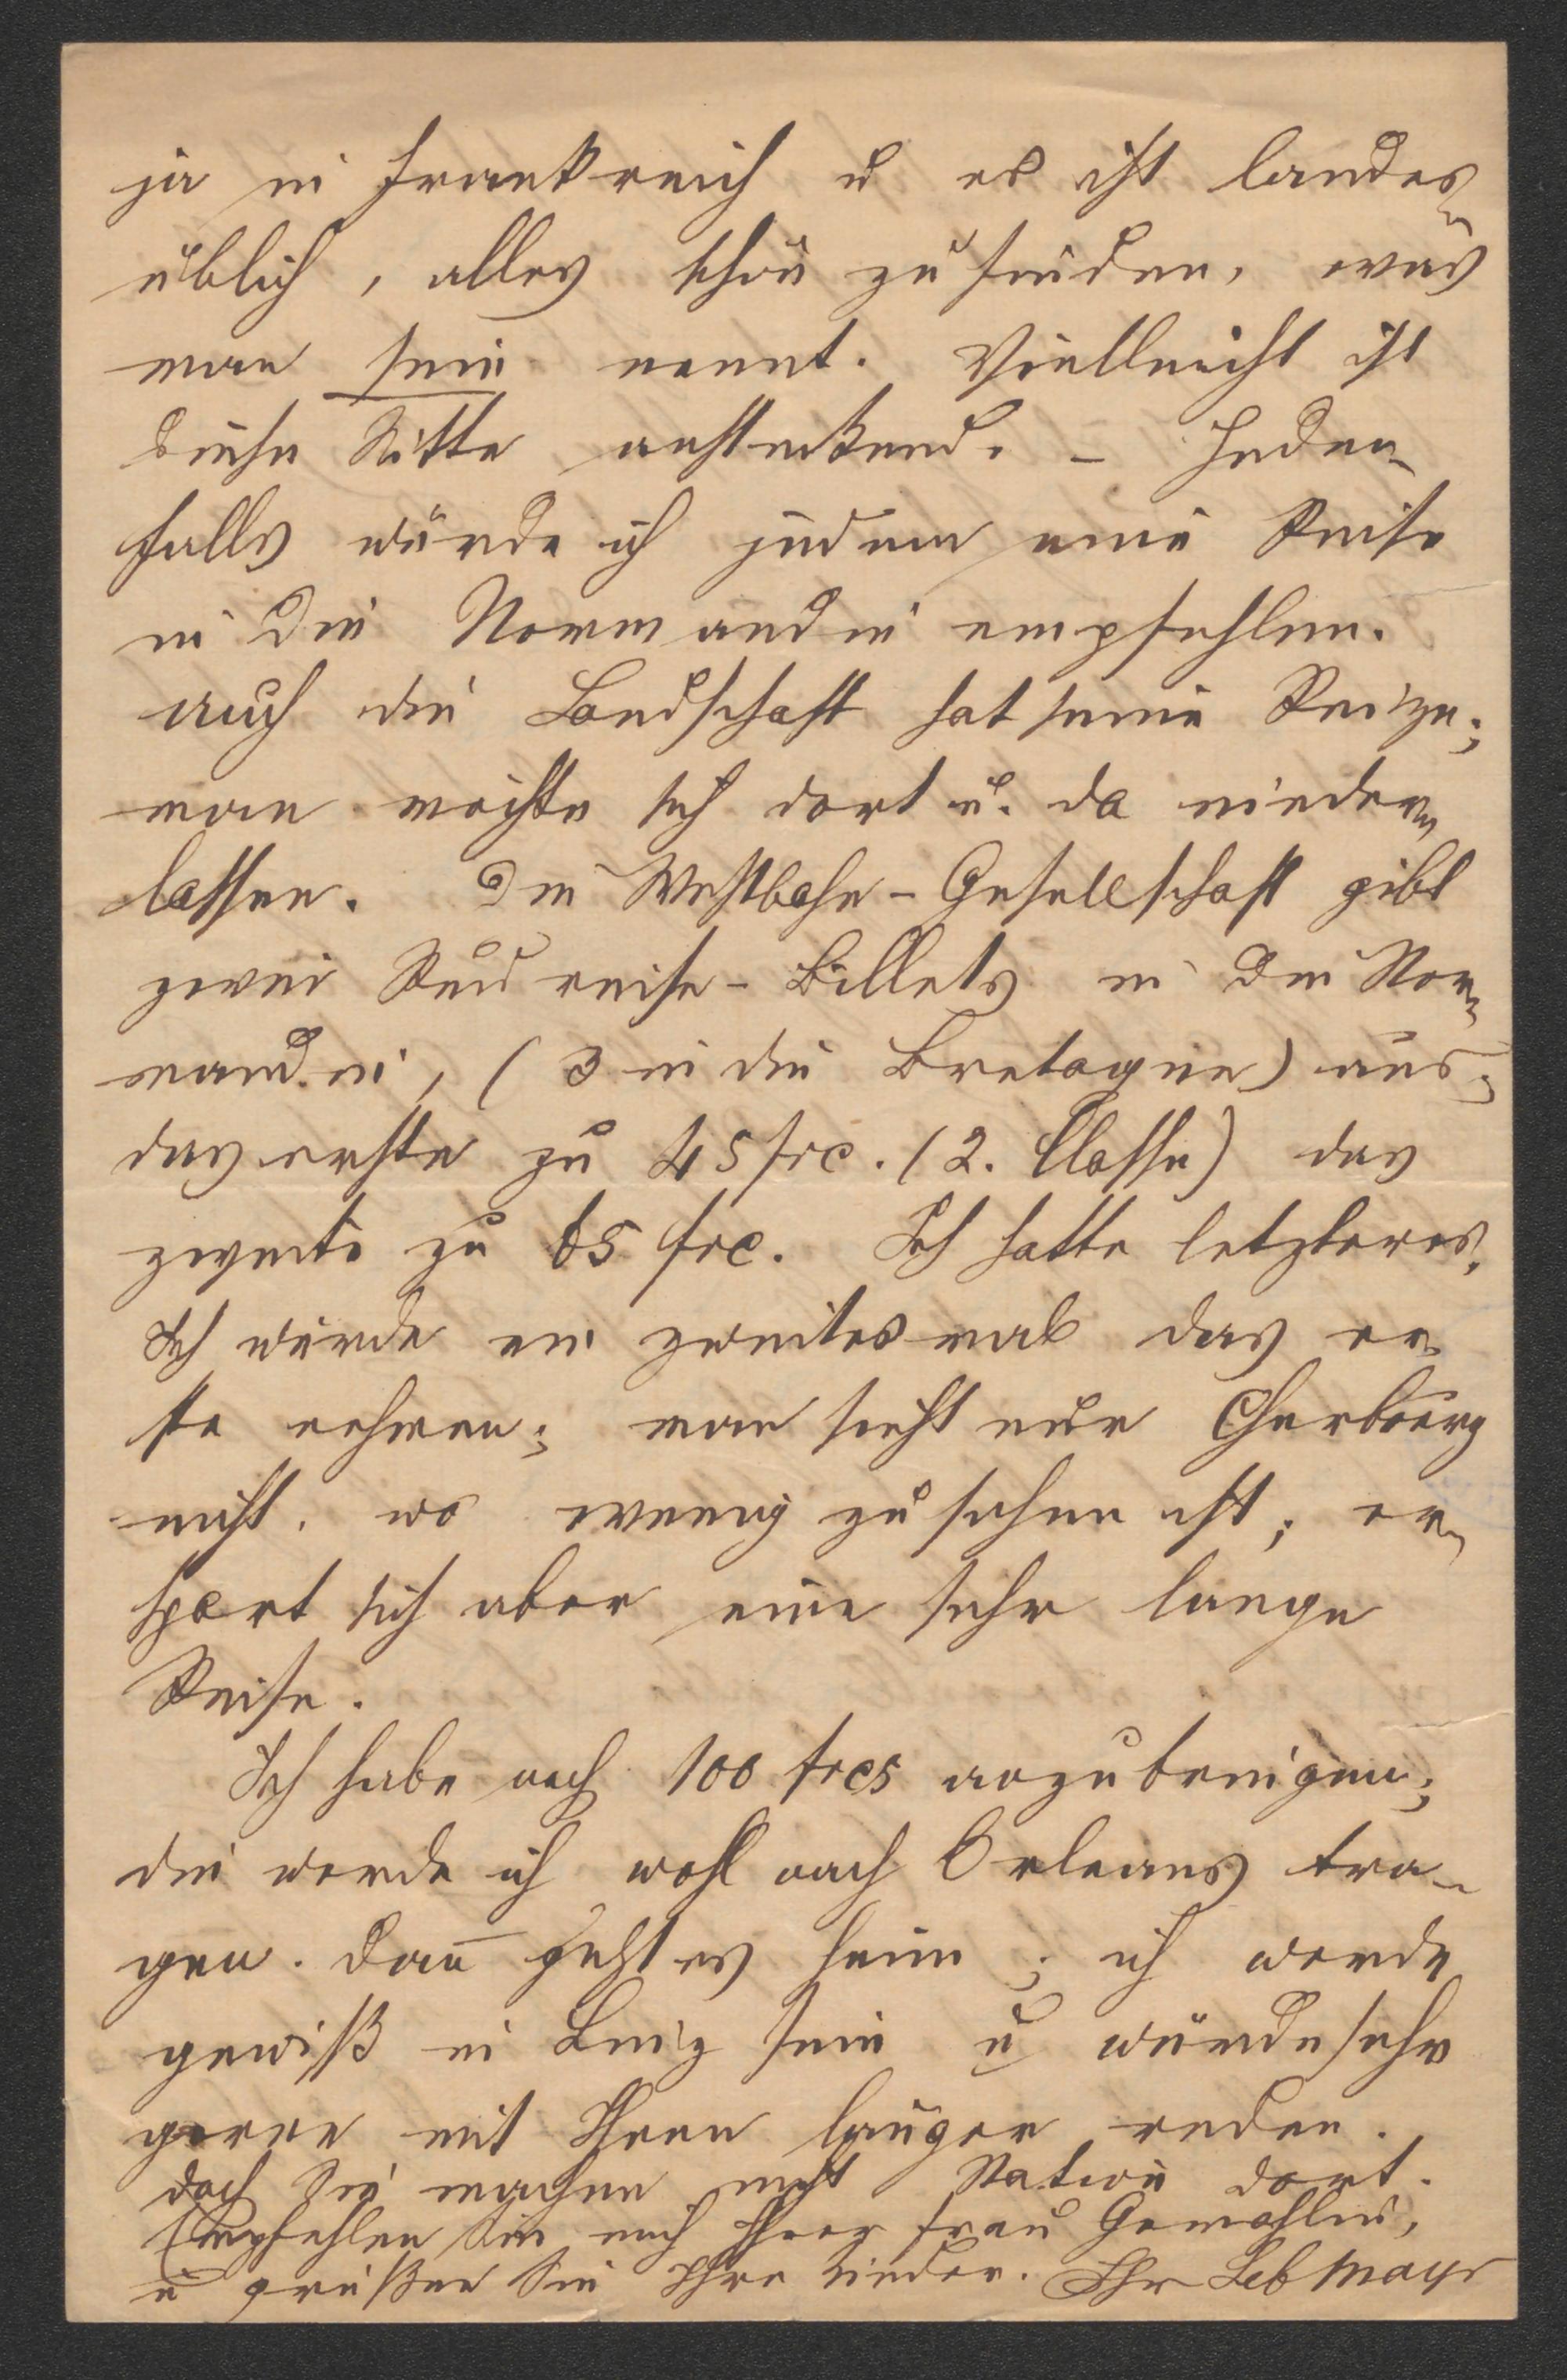 ja in Frankreich u es ist landes=
üblich, alles schön zu finden, was
man sein nennt. Vielleicht ist
diese Sitte ansteckend. – Jeden-
falls würde ich jedem eine Reise
in die Normandie empfehlen.
auch die Landschaft hat seine Reize;
man möchte sich dort u. da nieder=
lassen. Die Westbahn-Gesellschaft gibt
zwei Rundreise-Billets in die Nor=
mandie, (3 in die Bretagne) aus;
das erste zu 45 frc. (2. Classe) das
zweite zu 65 frc. Ich hatte letzteres.
Ich würde ein zweitesmal das er-
ste nehmen; man sieht nur Cherbourg
nicht, wo wenig zu sehen ist; er=
spart sich aber eine sehr lange
Reise.
Ich habe noch 100 frcs anzubringen;
die werde ich wohl nach Orleans tra-
gen. Dan̄ geht es heim; ich werde
gewiß in Linz sein u würde sehr
gerne mit Ihnen länger reden.
doch Sie machen nicht Station dort.
Empfehlen Sie mich Ihrer Frau Gemahlin,
u grüßen Sie Ihre Kinder. Ihr Seb Mayr